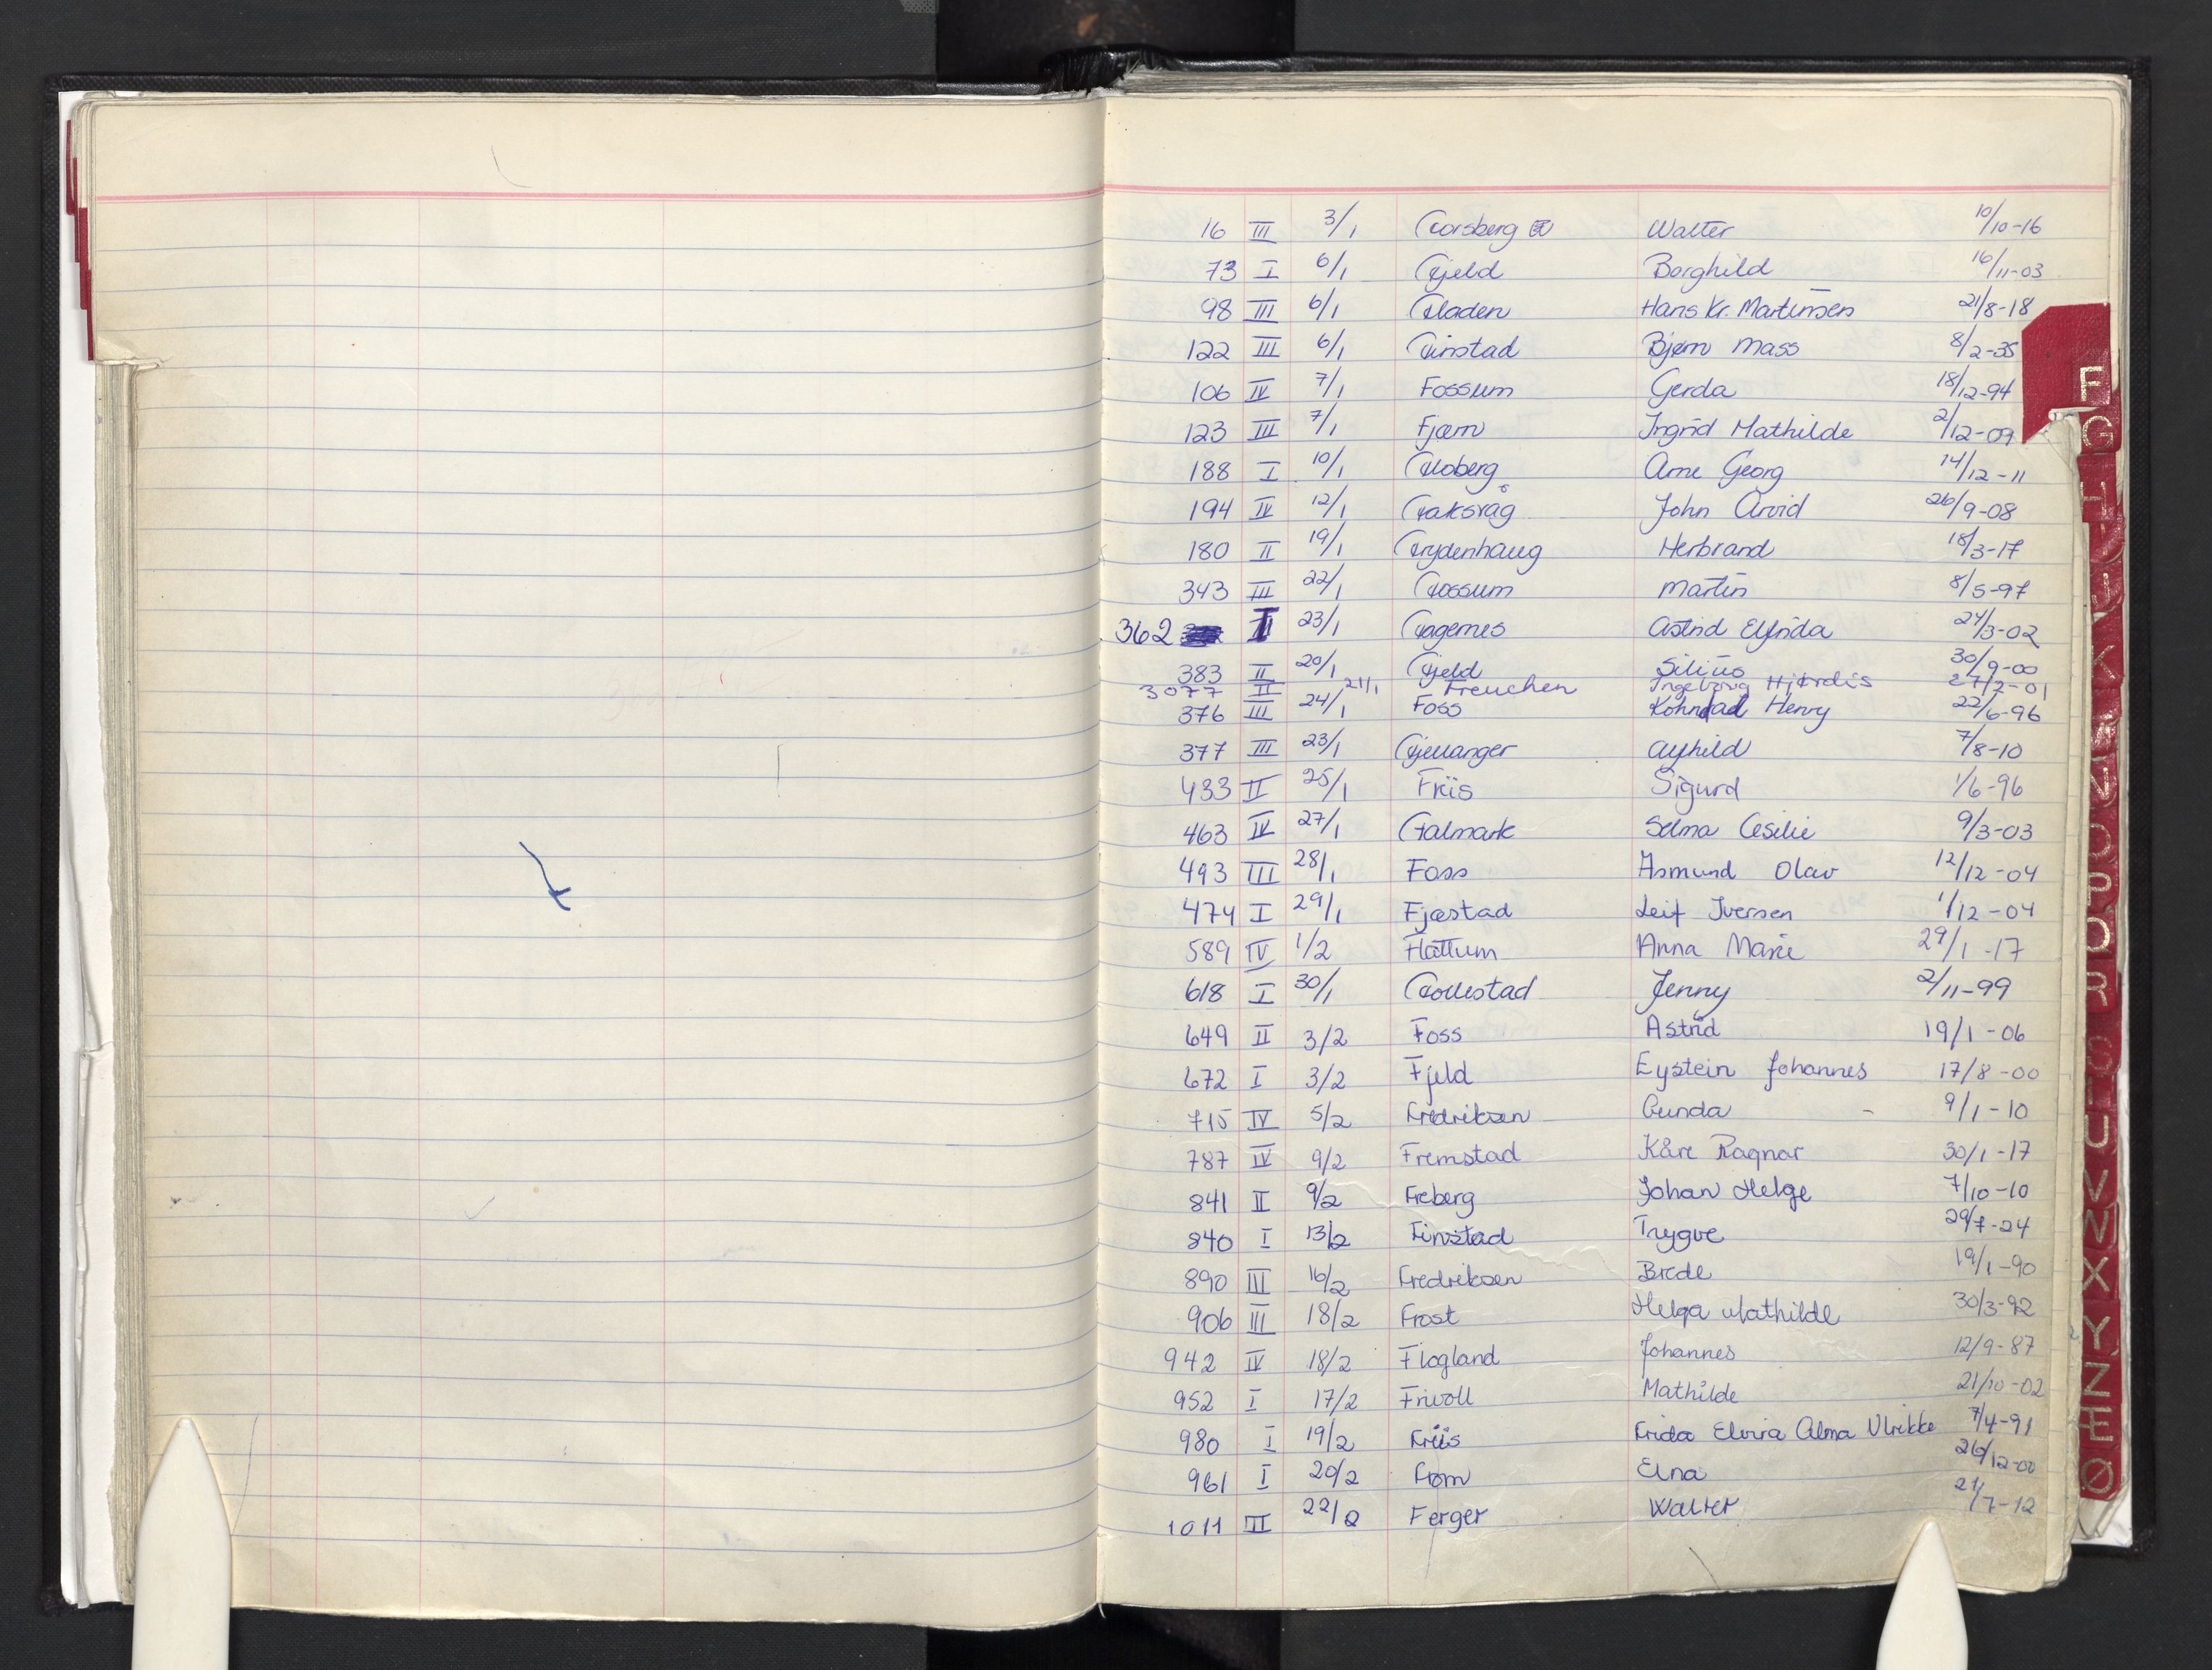 16 III 3/1 Forsberg Walter 10/10-16
73 I 6/1 Fjeld Borghild 16/11-03
98 III 6/1 Fladen Hans Kr. Martinsen 21/8-18
122 III 6/1 Finstad Bjørn Mass 8/2-35
106 IV 7/1 Fossum Gerda 18/12-94
123 III 7/1 Fjærn Ingrid Mathilde 2/12-09
188 I 10/1 Floberg Arne Georg 14/12-11
194 IV 12/1 Faksvåg John Arvid 26/9-08
180 II 19/1 Frydenhaug Herbrand 18/3-17
343 III 22/1 Fossum Martin 8/5-97
362 I 23/1 Fagernes Astrid Elfrida 24/3-02
383 II 20/1 Fjeld Silius 30/9-00
3077 II 21/1 Freuchen Ingeborg Hjørdis 27/2-01
376 III 24/1 Foss Kohnrad Henry 22/6-96
377 III 23/1 Fjellanger Ayhild 7/8-10
433 II 25/1 Friis Sigurd 1/6-96
463 IV 27/1 Falmark Selma Cesilie 9/3-03
493 III 28/1 Foss Asmund Olav 12/12-04
474 I 29/1 Fjæstad Leif Iversen 1/12-04
589 IV 1/2 Flattum Anna Marie 29/1-17
618 I 30/1 Follestad Jenny 2/11-99
649 II 3/2 Foss Astrid 19/1-06
672 I 3/2 Fjeld Eystein Johannes 17/8-00
715 IV 5/2 Fredriksen Gunda 9/1-10
787 IV 9/2 Fremstad Kåre Ragnar 30/1-17
841 II 9/2 Freberg Johan Helge 7/10-10
840 I 13/2 Finstad Trygve 29/7-24
890 III 16/2 Fredriksen Brede 19/1-90
906 III 18/2 Frost Helga Mathilde 30/3-92
942 IV 18/2 Flogland Johannes 12/9-87
952 I 17/2 Frivoll Mathilde 21/10-02
980 I 19/2 Friis Frida Elvira Alma Ulrikke 7/4-91
961 I 20/2 From Elna 26/12-00
1011 III 22/2 Ferger Walter 21/7-12
F
G
H
I
J
K
L
M
N
O
P
Q
R
S
T
U
V
W
X
Y
Z
Æ
Ø